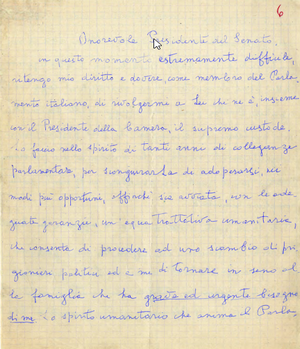 6
Onorevole Presidente del Senato,
in questo momento estremamente difficile,
ritengo mio diritto e dovere, come membro del Parla=
mento italiano, di rivolgermi a Lei che ne è, insieme
con il Presidente della Camera, il supremo custode.
Lo faccio nello spirito di tanti anni di colleganza
parlamentare, per scongiurarla di adoperarsi, nei
modi più opportuni, affinché sia avviata, con le ade=
guate garanzie, un'equa trattativa umanitaria,
che consenta di procedere ad uno scambio di pri=
gionieri politici ed a me di tornare in seno al
la famiglia che ha grave ed urgente bisogno
di me. Lo spirito umanitario che anima il Parla=